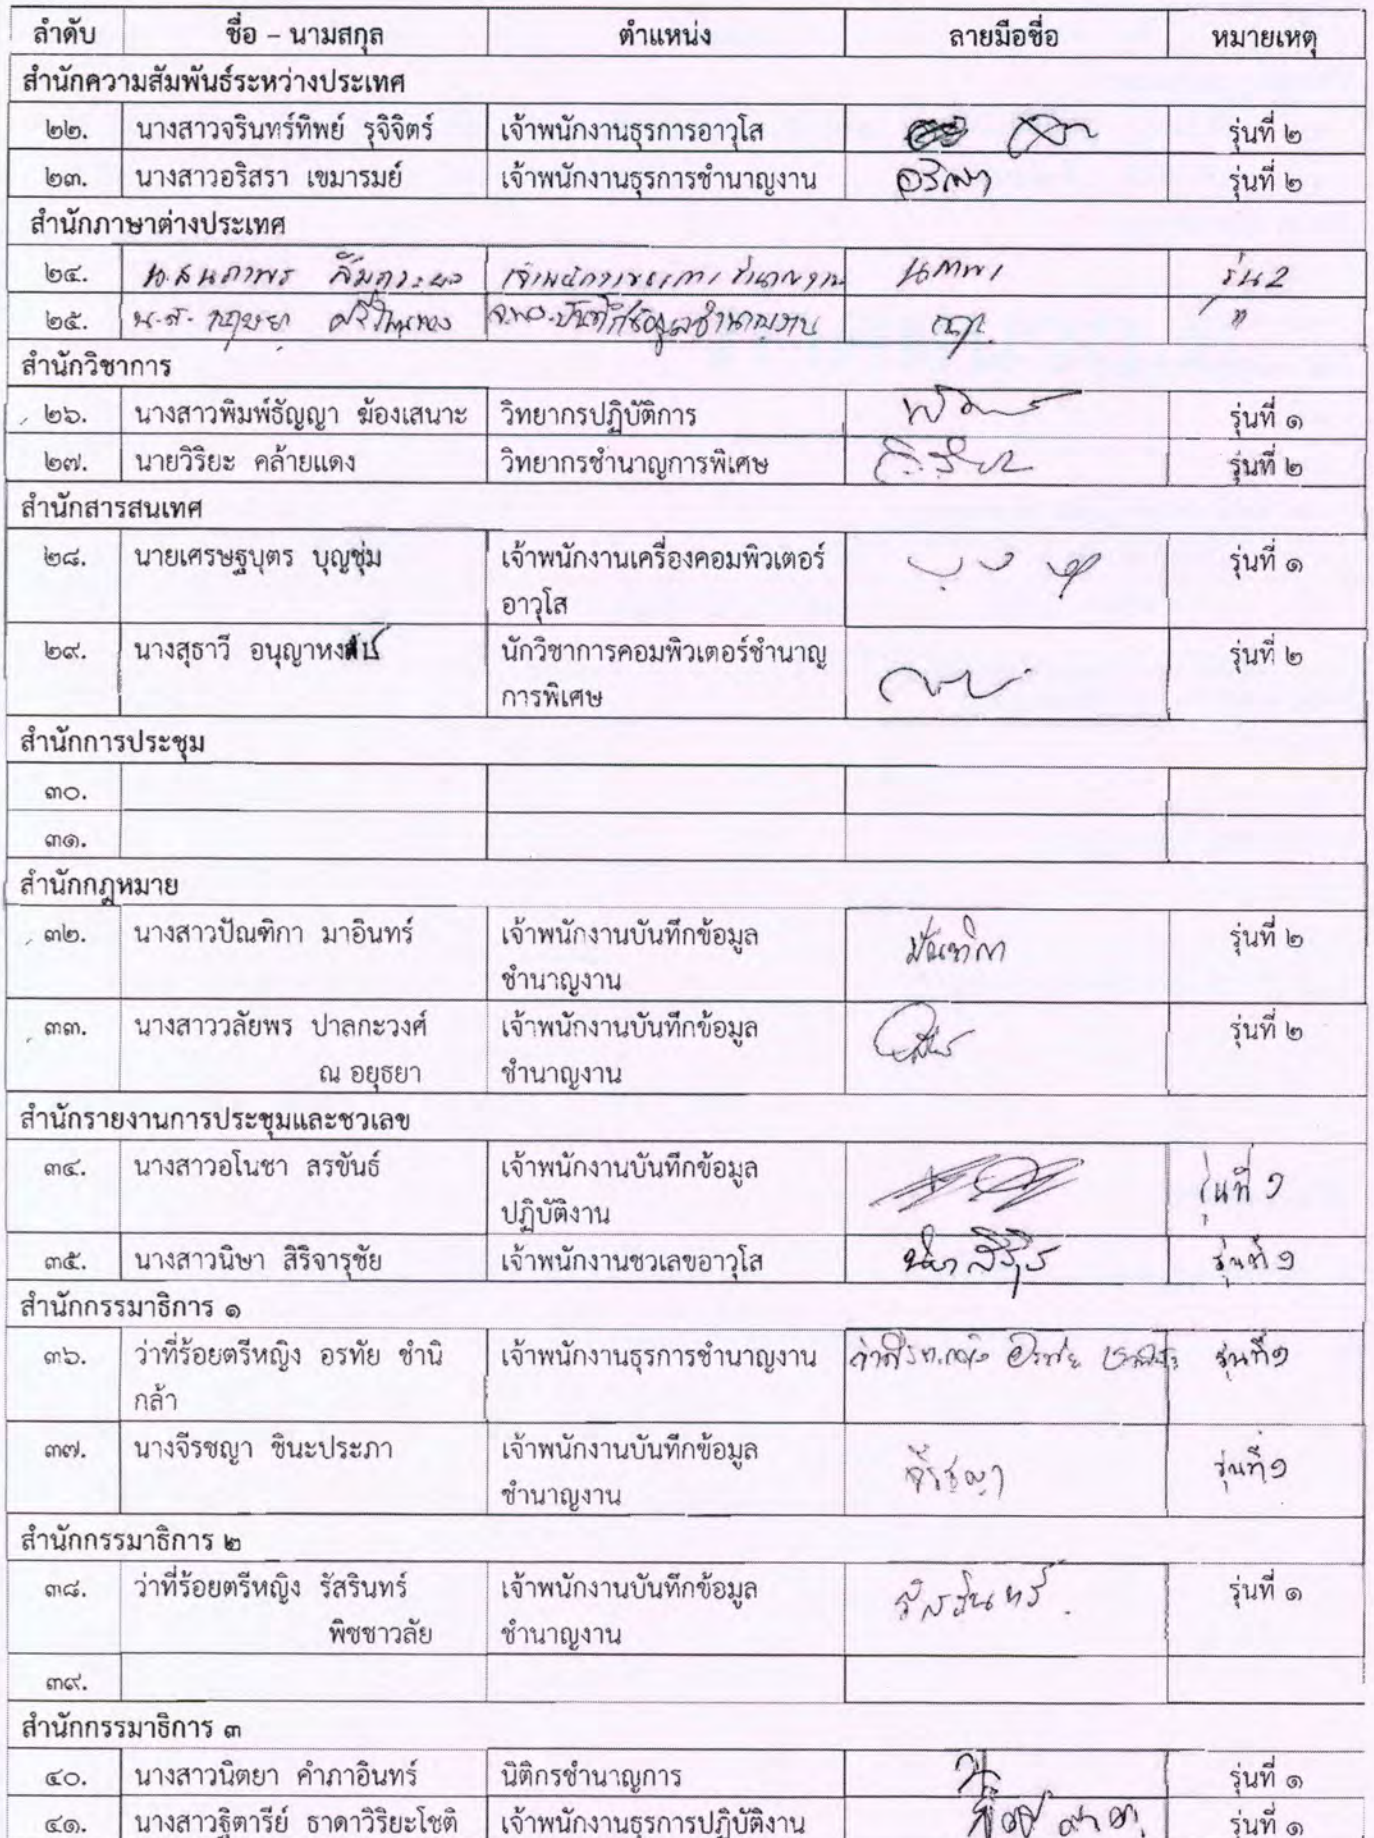 ลำดับ ชื่อ – นามสกุล ตำแหน่ง ลายมือชื่อ หมายเหตุ
สำนักความสัมพันธ์ระหว่างประเทศ
๒๒. นางสาวจรินทร์ทิพย์ รุจิจิตร์ เจ้าพนักงานธุรการอาวุโส รุ่นที่ ๒
๒๓. นางสาวอริสรา เขมารมย์ เจ้าพนักงานธุรการชำนาญงาน อริสรา รุ่นที่ ๒
สำนักภาษาต่างประเทศ
๒๔. เจ้าพนักงานธุรการ ชำนาญงาน นภาพร รุ่น 2
๒๕. น.ส. จ.พ.ง.บันทึกข้อมูลชำนาญงาน "
สำนักวิชาการ
๒๖. นางสาวพิมพ์ธัญญา ฆ้องเสนาะ วิทยากรปฏิบัติการ รุ่นที่ ๑
๒๗. นายวิริยะ คล้ายแดง วิทยากรชำนาญการพิเศษ รุ่นที่ ๒
สำนักสารสนเทศ
๒๘. นายเศรษฐบุตร บุญชุ่ม เจ้าพนักงานเครื่องคอมพิวเตอร์ รุ่นที่ ๑
อาวุโส
๒๙. นางสุธาวี นักวิชาการคอมพิวเตอร์ชำนาญ รุ่นที่ ๒
การพิเศษ
สำนักการประชุม
๓๐.
๓๑.
สำนักกฎหมาย
๓๒. นางสาวปัณฑิกา มาอินทร์ เจ้าพนักงานบันทึกข้อมูล ปัณฑิกา รุ่นที่ ๒
ชำนาญงาน
๓๓. นางสาววลัยพร ปาลกะวงศ์ เจ้าพนักงานบันทึกข้อมูล รุ่นที่ ๒
ณ อยุธยา ชำนาญงาน
สำนักรายงานการประชุมและชวเลข
๓๔. นางสาวอโนชา สรขันธ์ เจ้าพนักงานบันทึกข้อมูล รุ่นที่ ๑
ปฏิบัติงาน
๓๕. นางสาวนิษา สิริจารุชัย เจ้าพนักงานชวเลขอาวุโส รุ่นที่ ๑
สำนักกรรมาธิการ ๑
๓๖. ว่าที่ร้อยตรีหญิง อรทัย ชำนิ เจ้าพนักงานธุรการชำนาญงาน รุ่นที่ ๑
กล้า
๓๗. นางจีรชญา ชินะประภา เจ้าพนักงานบันทึกข้อมูล จีรชญา รุ่นที่ ๑
ชำนาญงาน
สำนักกรรมาธิการ ๒
๓๘. ว่าที่ร้อยตรีหญิง รัสรินทร์ เจ้าพนักงานบันทึกข้อมูล รัสรินทร์ รุ่นที่ ๑
พิชชาวลัย ชำนาญงาน
๓๙.
สำนักกรรมาธิการ ๓
๔๐. นางสาวนิตยา คำภาอินทร์ นิติกรชำนาญการ รุ่นที่ ๑
๔๑. นางสาวฐิตารีย์ ธาดาวิริยะโชติ เจ้าพนักงานธุรการปฏิบัติงาน รุ่นที่ ๑